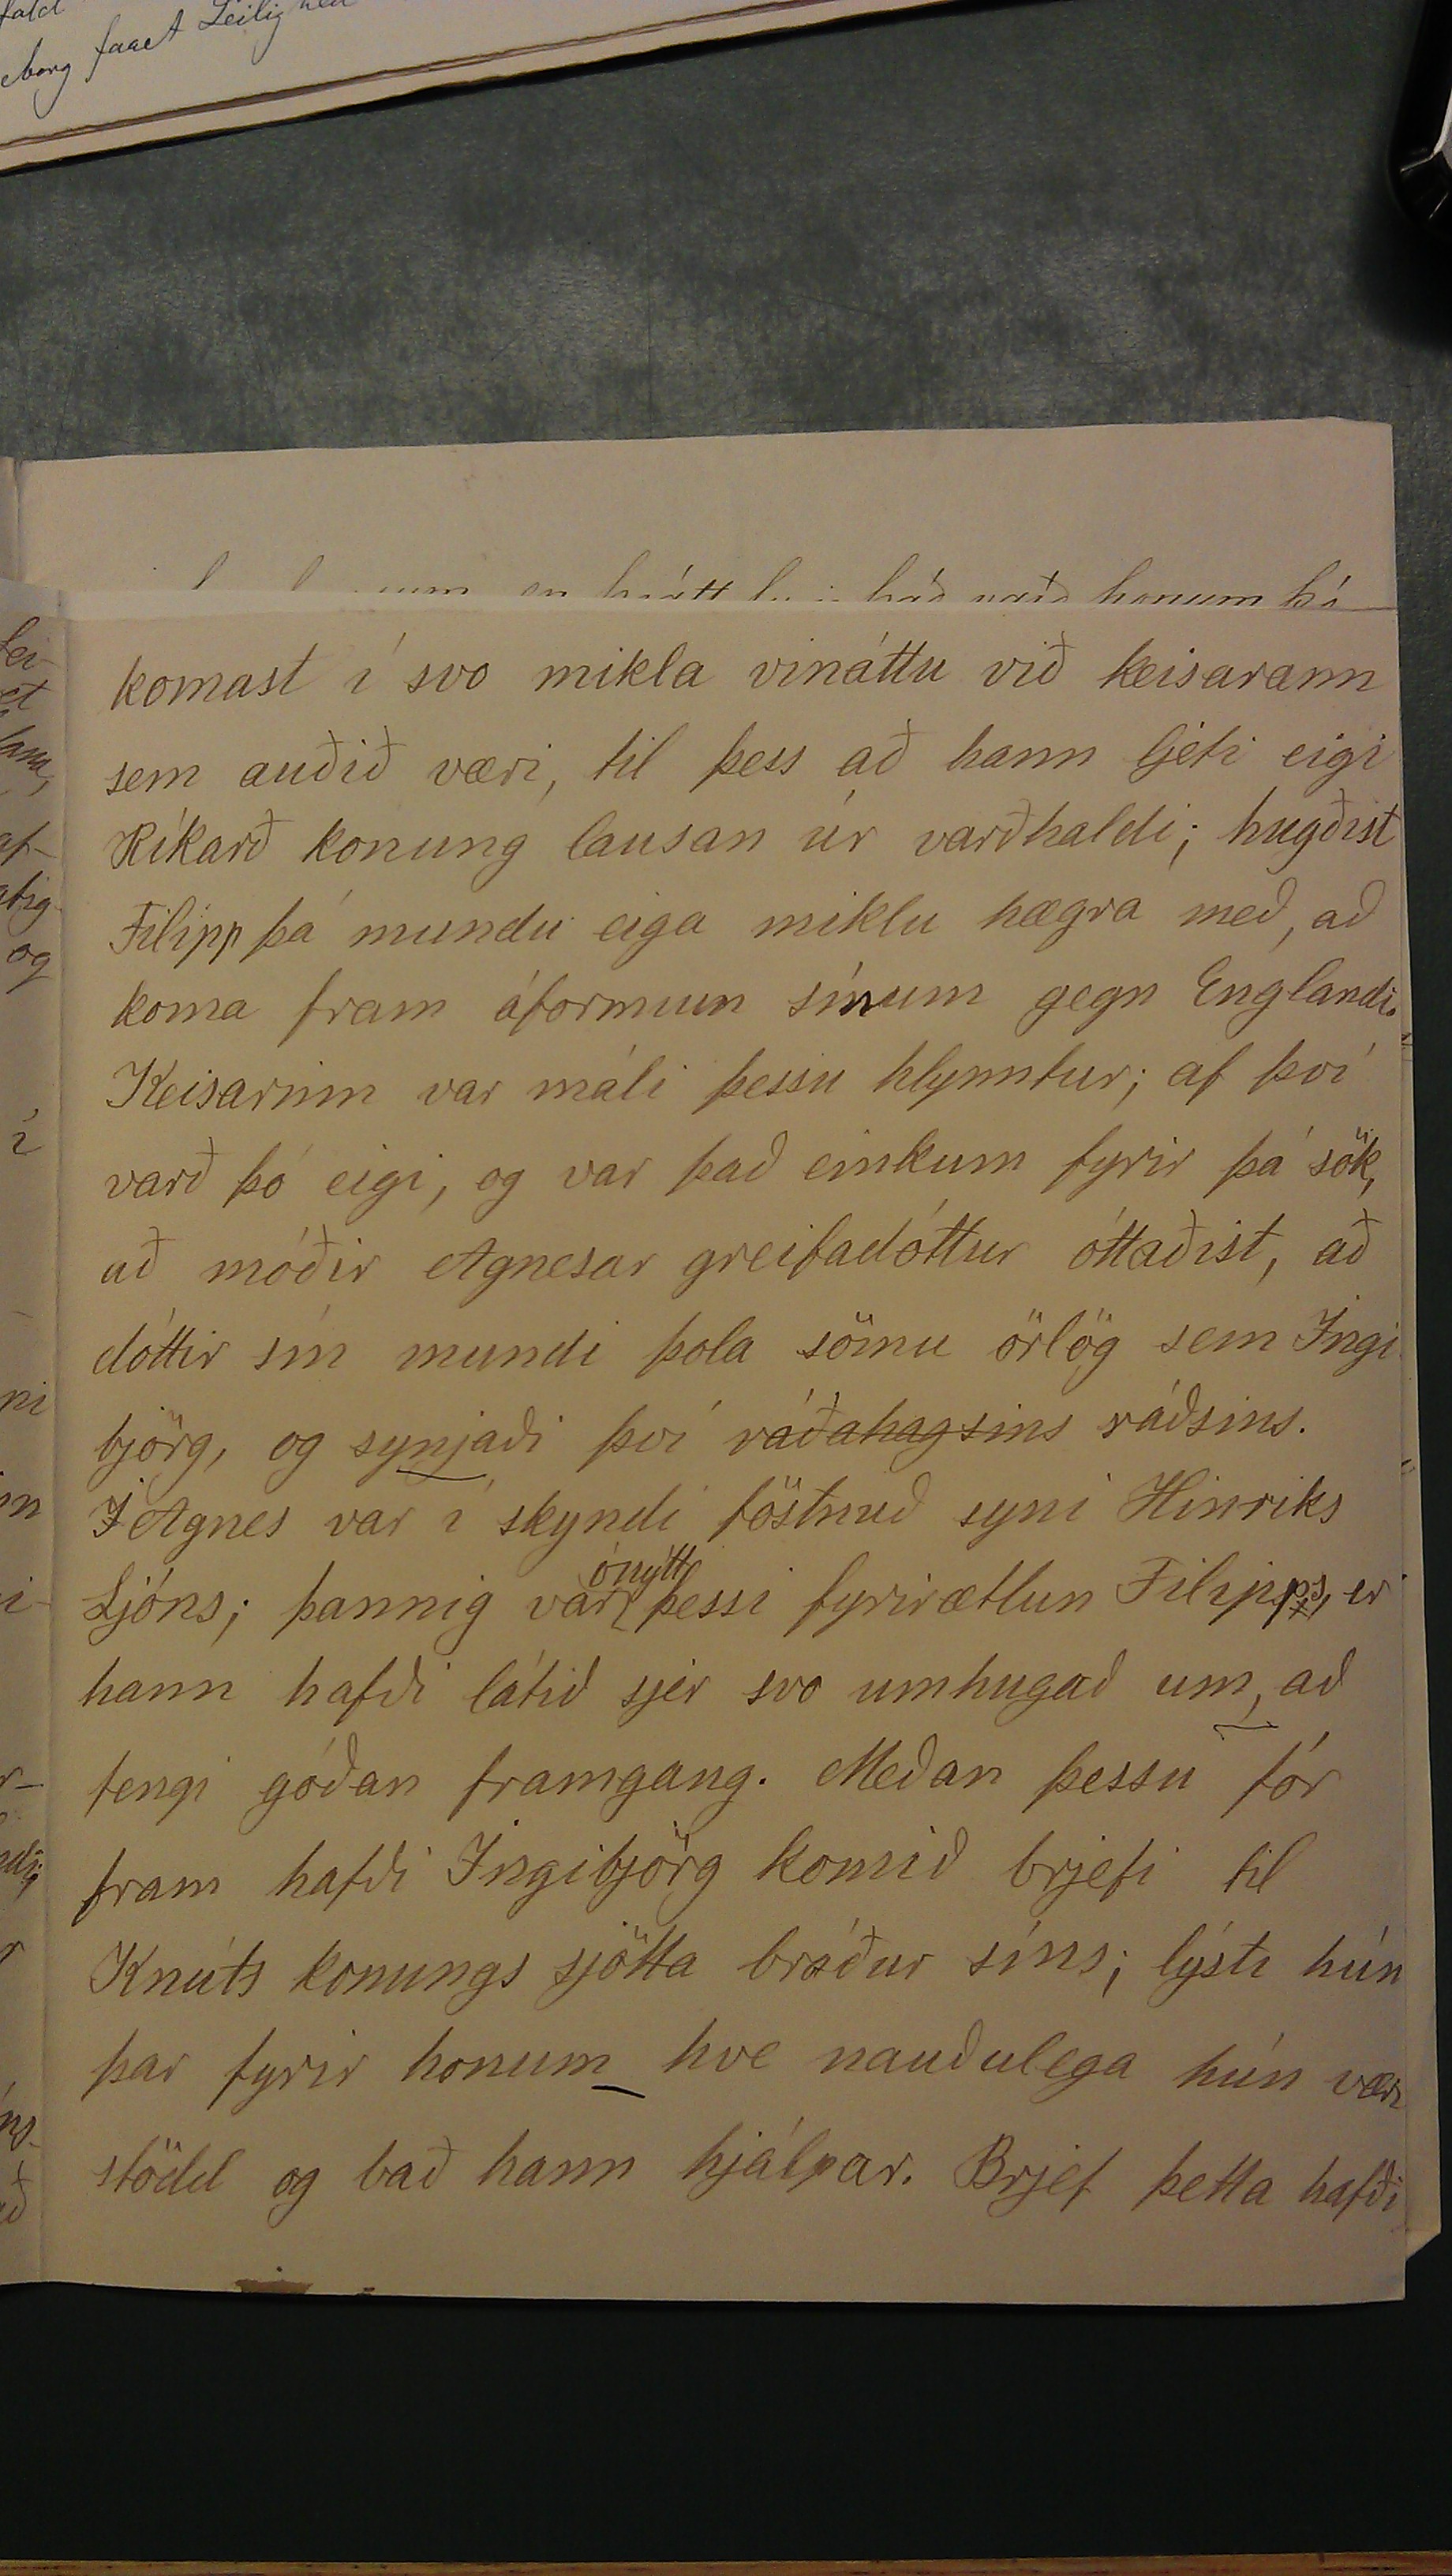 borg faaet Leilighed
komast í svo mikla vináttu við keisarann
sem auðið væri, til þess að hann ljeti eigi
Ríkarð konung lausan úr varðhaldi; hugðist
Filipp þá mundu eiga miklu hægra með, að
koma fram áformum sínum gegn Englandi.
Keisarinn var máli þessu hlynntur; af því
varð þó eigi, og var það einkum fyrir þá sök,
að móðir Agnesar greifadóttur óttaðist, að
dóttir sín mundi þola sömu örlög sem Ingi
björg, og synjaði því ráðahagsins ráðsins.
Agnes var í skyndi föstnuð syni Hinriks
ónýtt
Ljóns; þannig var þessi fyrirætlun Filipps, er
hann hafði látið sjer svo umhugað um, að
fengi góðan framgang. Meðan þessu fór
fram hafði Ingibjörg komið brjefi til
Knúts konungs sjötta bróður síns; lýsti hún
þar fyrir honum hve nauðulega hún væri
stödd og bað hann hjálpar. Brjef þetta hafði